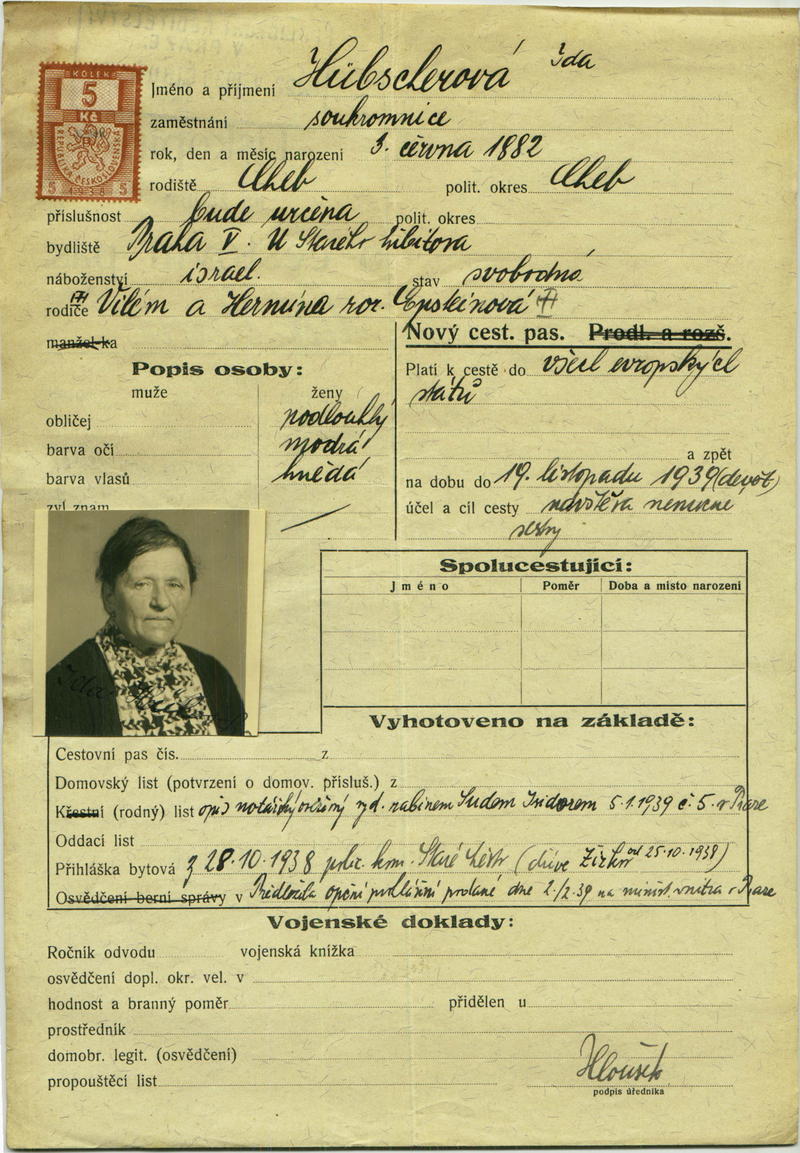 KOLEK
5
Kč
REPUBLIKA ČESKOSLOVENSKÁ
5 1938 5
Jméno a příjmení Hübscherová Ida
zaměstnání soukromnice
rok, den a měsíc narození 3. června 1882
rodiště Cheb polit. okres Cheb
příslušnost bude určena polit. okres
bydliště Praha V. U Starého hřbitova
náboženství israel. stav svobodná
rodiče Vilém a Hermína roz. Epsteinová
manžel-ka
Nový cest. pas. Prodl. a rozš.
Popis osoby:
muže ženy
Platí k cestě do všech evropských
států
obličej podlouhlý
barva očí modrá
barva vlasů hnědá
zvl. znam.
a zpět
na dobu do 19. listopadu 1939 (devět)
účel a cíl cesty návštěva nemocné
sestry
Spolucestující:
Jméno Poměr Doba a místo narození
Vyhotoveno na základě:
Cestovní pas čís. z
Domovský list (potvrzení o domov. přísluš.) z
Křestní (rodný) list opis notářsky ověřený vyd. rabínem 5.1.1939 č. 5. v Praze
Oddací list
Přihláška bytová z 28.10.1938 kom. Staré město (dříve Žižkov od 25.10.1938)
Osvědčení berní správy v Předložila opční prohlášení podané dne 2./2.39 na minist. vnitra v Praze
Vojenské doklady:
Ročník odvodu vojenská knížka
osvědčení dopl. okr. vel. v
hodnost a branný poměr přidělen u
prostředník
domobr. legit. (osvědčení)
propouštěcí list
Hloušek
podpis úředníka